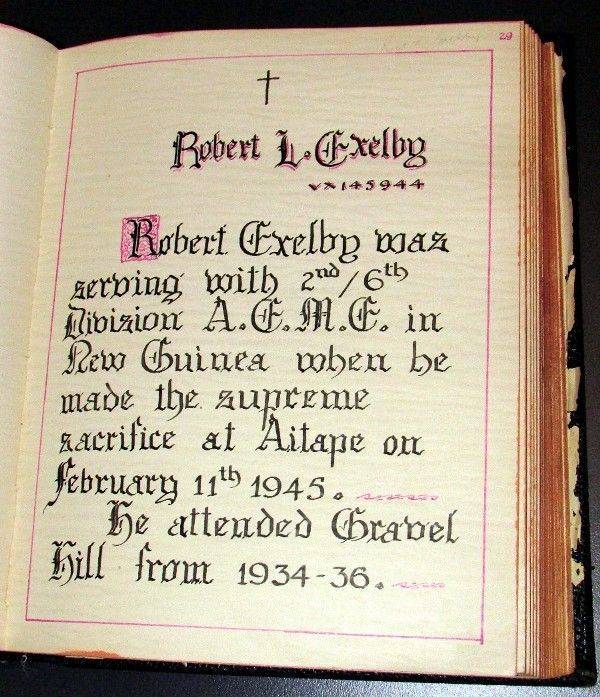 29
Robert L. Exelby
VX145944
Robert Exelby was
serving with 2nd/6th
Division A.E.M.E. in
New Guinea when he
made the supreme
sacrifice at Aitape on
February 11th 1945.
He attended Gravel
Hill from 1934-36.